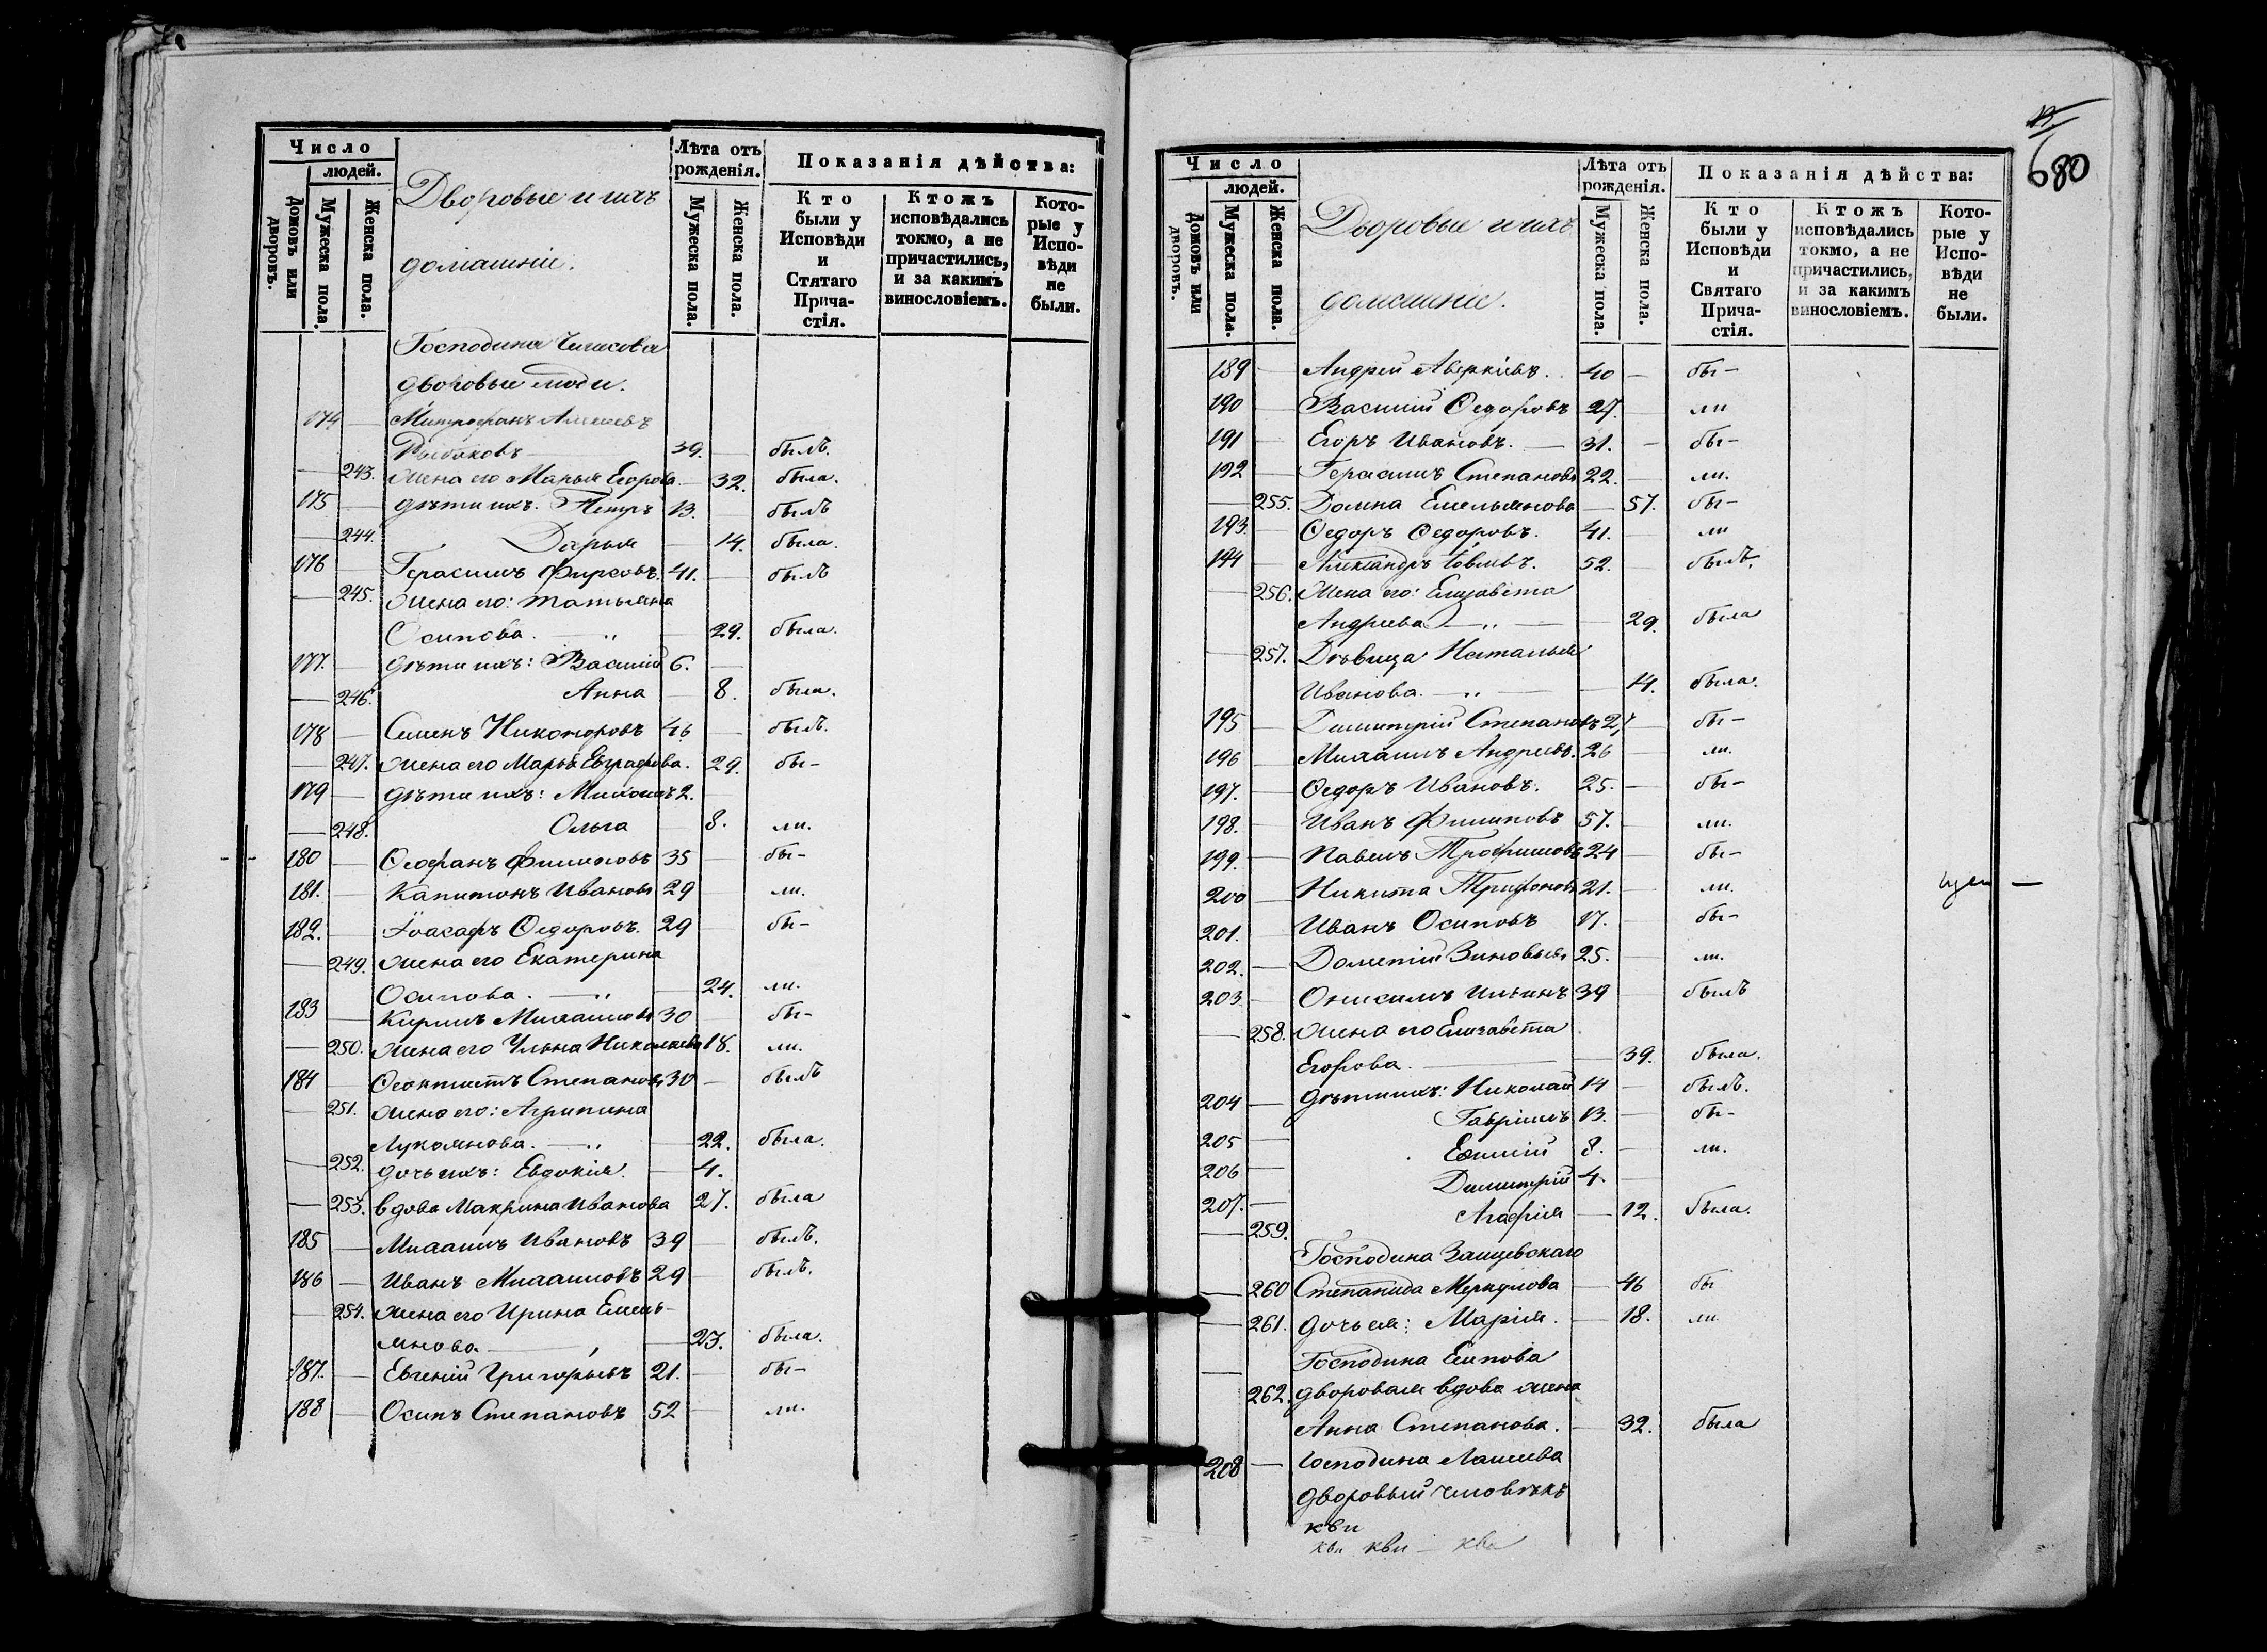 Число
людей.
Домовъ или дворовъ.
Мужеска пола.
Женска пола.
Дворовые и ихъ
домашніе.
Лѣта отъ рожденія.
Мужеска пола.
Женска пола.
Показанія дѣйства:
Кто были у Исповѣди и Стятаго Причастія.
Ктожъ исповѣдались токмо, а не причастились, и за какимъ винословіемъ.
Которые у Исповѣди не были.
Господина
дворовые люди.
174 — Митрофанъ
39. — былъ.
— 243. жена его Марья Егорова — 32. была.
175 — дѣти ихъ: Петръ 13. — былъ
— 244. Дарья — 14. была.
176 — Герасимъ Фирсовъ 41. — былъ
— 245. жена его: Татьяна
Осипова. — 29. была.
177. — дѣти ихъ: Василій 6. —
— 246. Анна — 8. была.
178 — Семенъ Никаноровъ 46 — былъ.
— 247. жена его Марья Евграфова. 29. бы-
179 — дѣти ихъ: Михаилъ 2. —
— 248. Ольга — 8. ли.
180 — Феофанъ Филиповъ 35 — бы-
181. — Капитонъ Ивановъ 29 — ли.
182. — Іоасафъ Федоровъ. 29 — бы-
— 249. жена его Екатерина
Осипова. — 24. ли.
183 — Кирилъ Михаиловъ 30 — бы-
— 250. жена его Ульяна Николаева 18. ли.
184 — Феоктистъ Степановъ 30 — былъ
— 251. жена его: Агрипина
Лукоянова. — 22. была.
— 252. дочь ихъ: Евдокія. — 4.
— 253. вдова Макрина Иванова 27. была
185 — Михаилъ Ивановъ 39 — былъ.
186 — Иванъ Михаиловъ 29 — былъ.
— 254. жена его Ирина Емель-
янова. — 23. была.
187. — Евгеній Григорьевъ 21. — бы-
188 — Осипъ Степановъ 52 — ли.
680
Число
людей.
Домовъ или дворовъ.
Мужеска пола.
Женска пола.
Дворовые и ихъ
домашніе.
Лѣта отъ рожденія.
Мужеска пола.
Женска пола.
Показанія дѣйства:
Кто были у Исповѣди и Святаго Причастія.
Ктожъ исповѣдались токмо, а не причастились, и за какимъ винословіемъ.
Которые у Исповѣди не были.
189 — Андрей Аверкіевъ. 40 — бы-
190 — Василій Федоровъ 27. — ли
191 — Егоръ Ивановъ. — 31. — бы-
192 — Герасимъ Степановъ 22. — ли.
— 255. Домна Емельянова — 57. бы-
193. — Федоръ Федоровъ. 41. — ли
194 — Александръ 52. — былъ.
— 256. Жена его: Елизавета
Андреева — 29. была
— 257. Дѣвица Наталья
Иванова. — 14. была.
195 — Димитрій Степановъ 27 — бы-
196 — Михаилъ Андреевъ. 26 — ли.
197. — Федоръ Ивановъ. 25. — бы-
198. — Иванъ Филиповъ 57. — ли.
199. — Павелъ Трофимовъ 24 — бы-
200 — Никита Трифоновъ 21. — ли.
201. — Иванъ Осиповъ 17. — бы-
202. — Дометій Зиновьевъ 25. — ли.
203 — Онисимъ Ильинъ 39 — былъ
— 258. жена его Елизавета
Егорова. — 39. была.
204 — дѣти ихъ: Николай 14 — былъ.
205 — Гавріилъ 13. — бы-
206 — 8. — ли.
207. — Димитрій 4. —
— 259. Агафія — 12. была.
Господина
— 260 Степанида Меркулова — 46 бы
— 261. дочь ея: Марія. — 18. ли
Господина Есипова
— 262. дворовая вдова жена
Анна Степанова. — 32. была
208 — Господина
дворовый человѣкъ